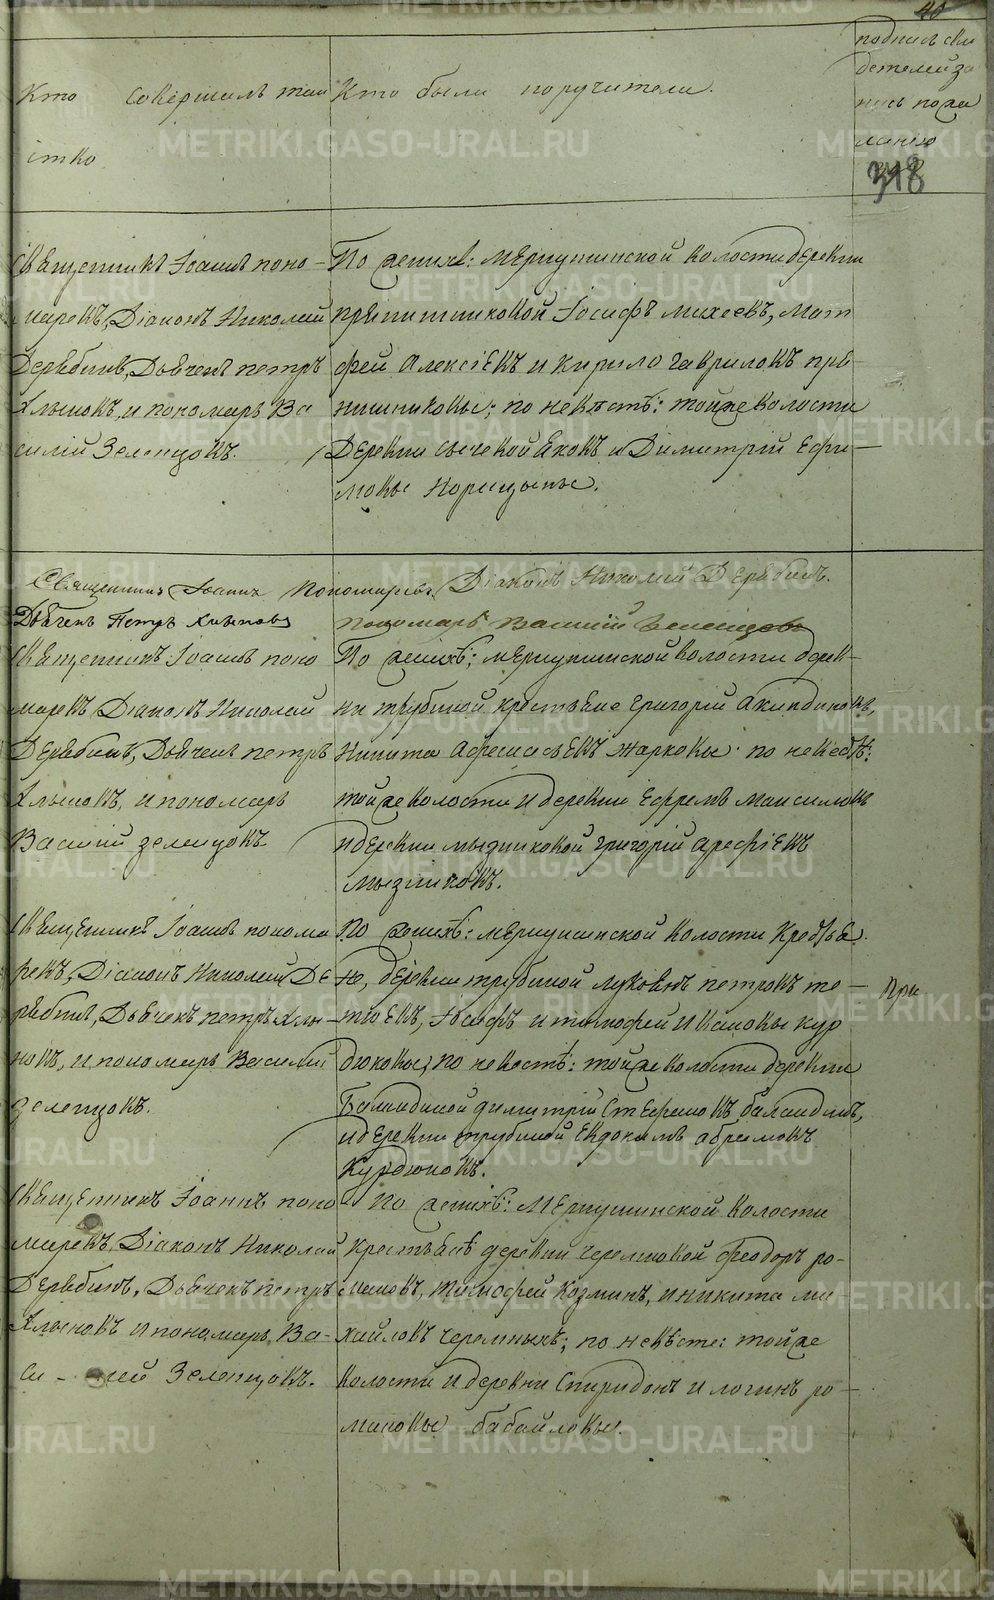 40
Кто совершилъ таи
нство
Кто были поручители.
подпись сви
детелей за
пись по жа
ланію
318
Священникъ Іоаннъ Поно-
маревъ, Діаконъ Николай
Дерябинъ, Дьячекъ Петръ
Хлыновъ, и пономарь Ва
силій Зеленцовъ.
По женихѣ: Меркушинской волости деревни
Іосифъ Михеевъ, Мат
фей Алексіевъ и Кирило Гавриловъ
по невѣстѣ: тойже волости
Деревни Яковъ и Димитрій Ефи-
мовы
Священникъ Іоаннъ Пономаревъ, Діаконъ Николай Дерябинъ.
Дьячекъ Петръ Хлыновъ
пономарь Василій Зеленцовъ
Священникъ Іоаннъ Поно
маревъ, Діаконъ Николай
Дерябинъ, Дьячекъ Петръ
Хлыновъ, и пономарь
Василій Зеленцовъ
По женихѣ: Меркушинской волости дерев-
ни Трубиной крестьяне Григорій Акиндиновъ,
Никита Жарковы: по невѣстѣ:
тойже волости и деревни Ефремъ Максимовъ
и деревни Мызниковой Григорій Арефіевъ
Мызниковъ.
Священникъ Іоаннъ Понома
ревъ, Діаконъ Николай Де
рябинъ, Дьячекъ Петръ Хлы-
новъ, и пономарь Василій
Зеленцовъ.
По женихѣ: Меркушинской волости Крестья
не, деревни Трубиной Петровъ
Іосифъ и Тимофей Ивановы Кур
дюковы; по невѣстѣ: тойже волости деревни
Баландиной Димитрій Стефановъ Баландинъ,
и деревни Трубиной Евдокимъ Абрамовъ
Курдюковъ.
При
Священникъ Іоаннъ Поно
маревъ, Діаконъ Николай
Дерябинъ, Дьячекъ Петръ
Хлыновъ и пономарь Ва-
си-лей Зеленцовъ.
По женихѣ: Меркушинской волости
крестьяне деревни Черемновой Феодоръ Ро-
мановъ, Тимофей Козминъ, и Никита Ми-
хайловъ Черемныхъ; по невѣсте: тойже
волости и деревни Спиридонъ и Логинъ Ро-
мановы Бабайловы.
METRIKI.GASO-URAL.RU